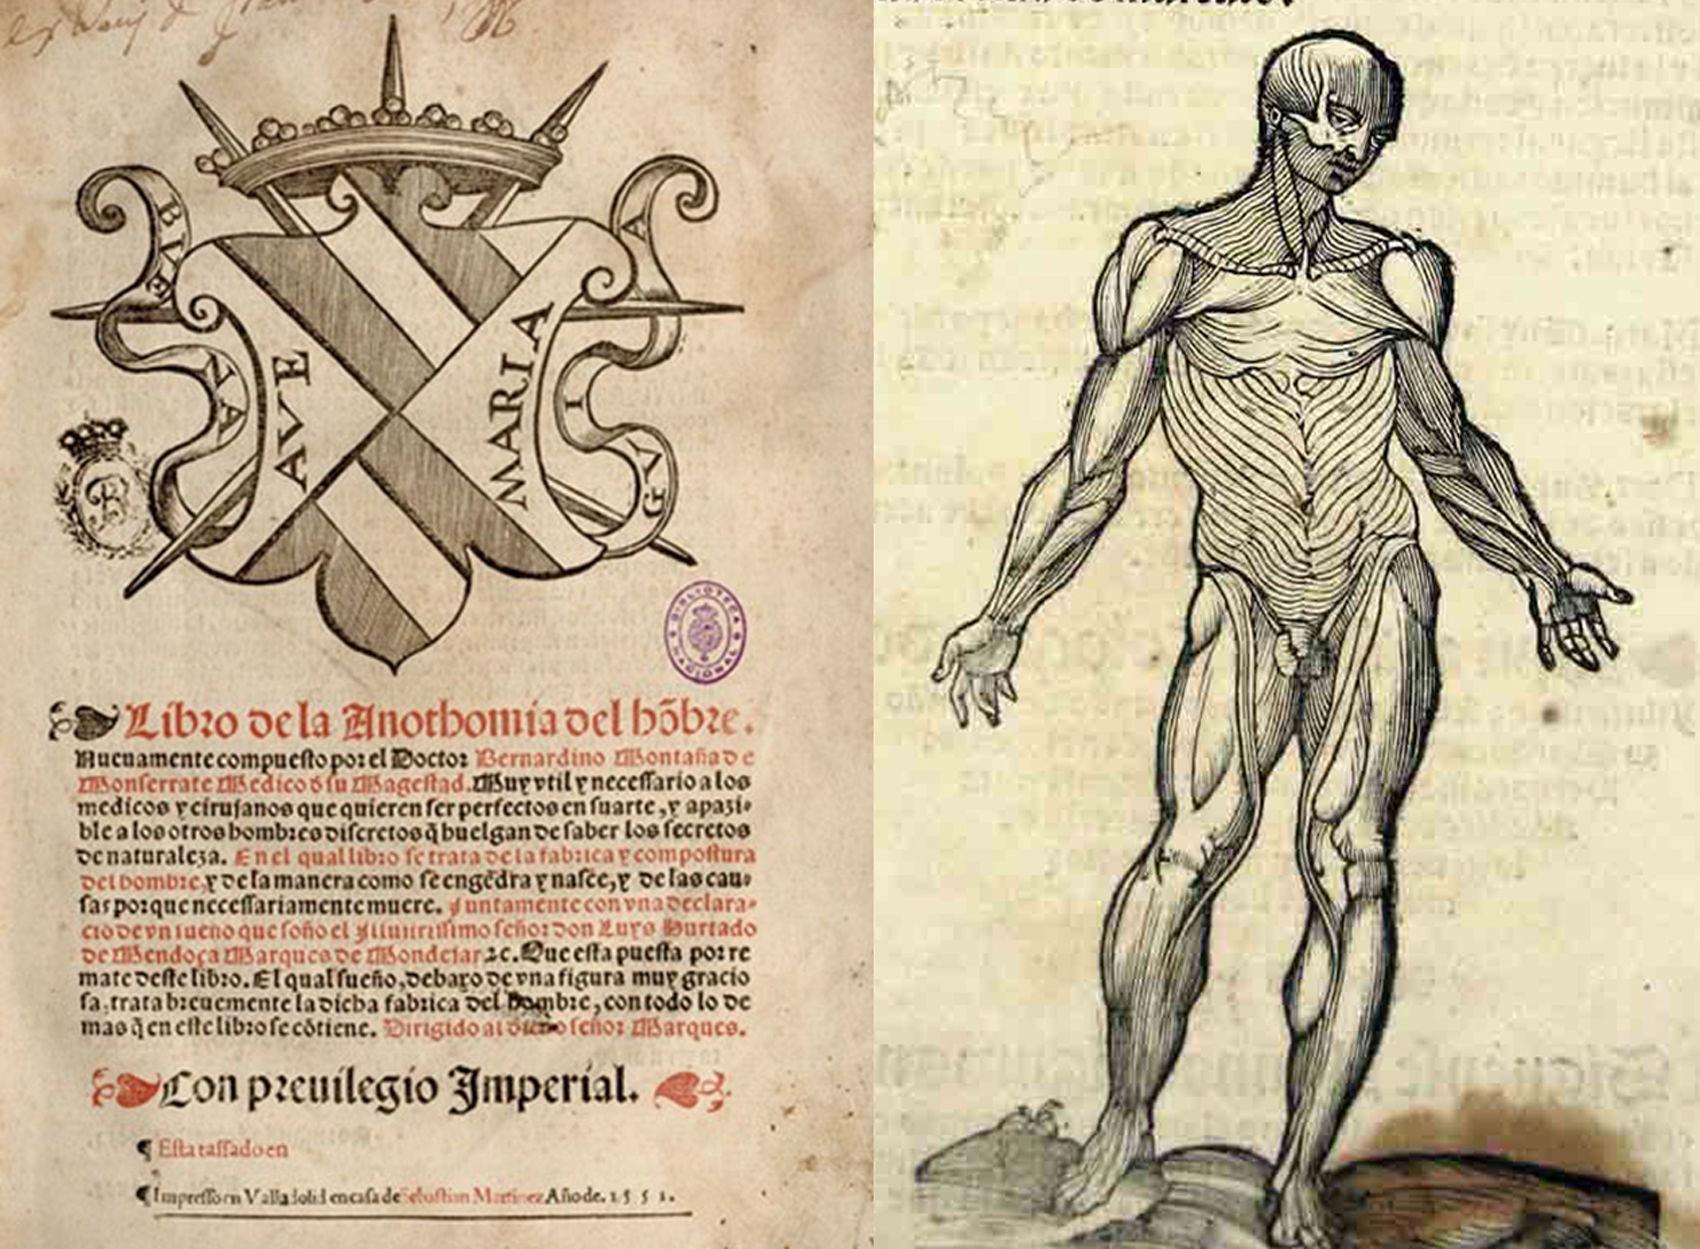 BVE
NA
AVE
MARIA
A
I
GV
BIBLIOTECA
NACIONAL
Libro de la Anothomia del hõbre.
Nueuamente compuesto por el Doctor Bernardino Montaña de
Monserrate Medico d su Magestad. Muy vtil y necessario a los
medicos y cirujanos que quieren ser perfectos en su arte, y apazi-
ble a los otros hombres discretos q̃ huelgan de saber los secretos
de naturaleza. En el qual libro se trata de la fabrica y compostura
del hombre, y de la manera como se engẽdra y nasce, y de las cau-
sas porque necessariamente muere. Juntamente con vna declara-
cio de vn sueño que soño el Illustrissimo señor don Luys Hurtado
de Mendoça Marques de Mondejar ꝛc. Que esta puesta por re
mate deste libro. El qual sueño, debaxo de vna figura muy gracio
sa, trata breuemente la dicha fabrica del hombre, con todo lo de
mas q̃ en este libro se cõtiene. Dirigido al dicho señor Marques.
Con preuilegio Imperial.
¶ Esta tassado en
¶ Impresso en Valladolid en casa de Sebastian Martinez Año de. 1551.